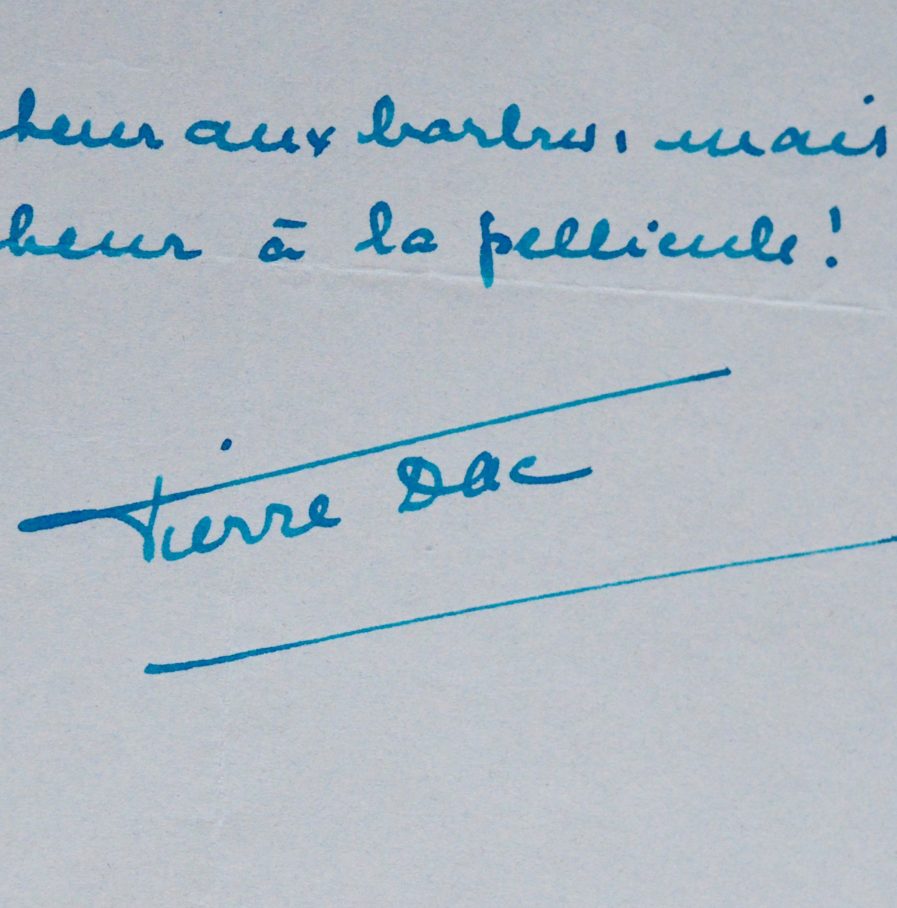 heur aux barbus, mais
heur à la pellicule !
Pierre Dac